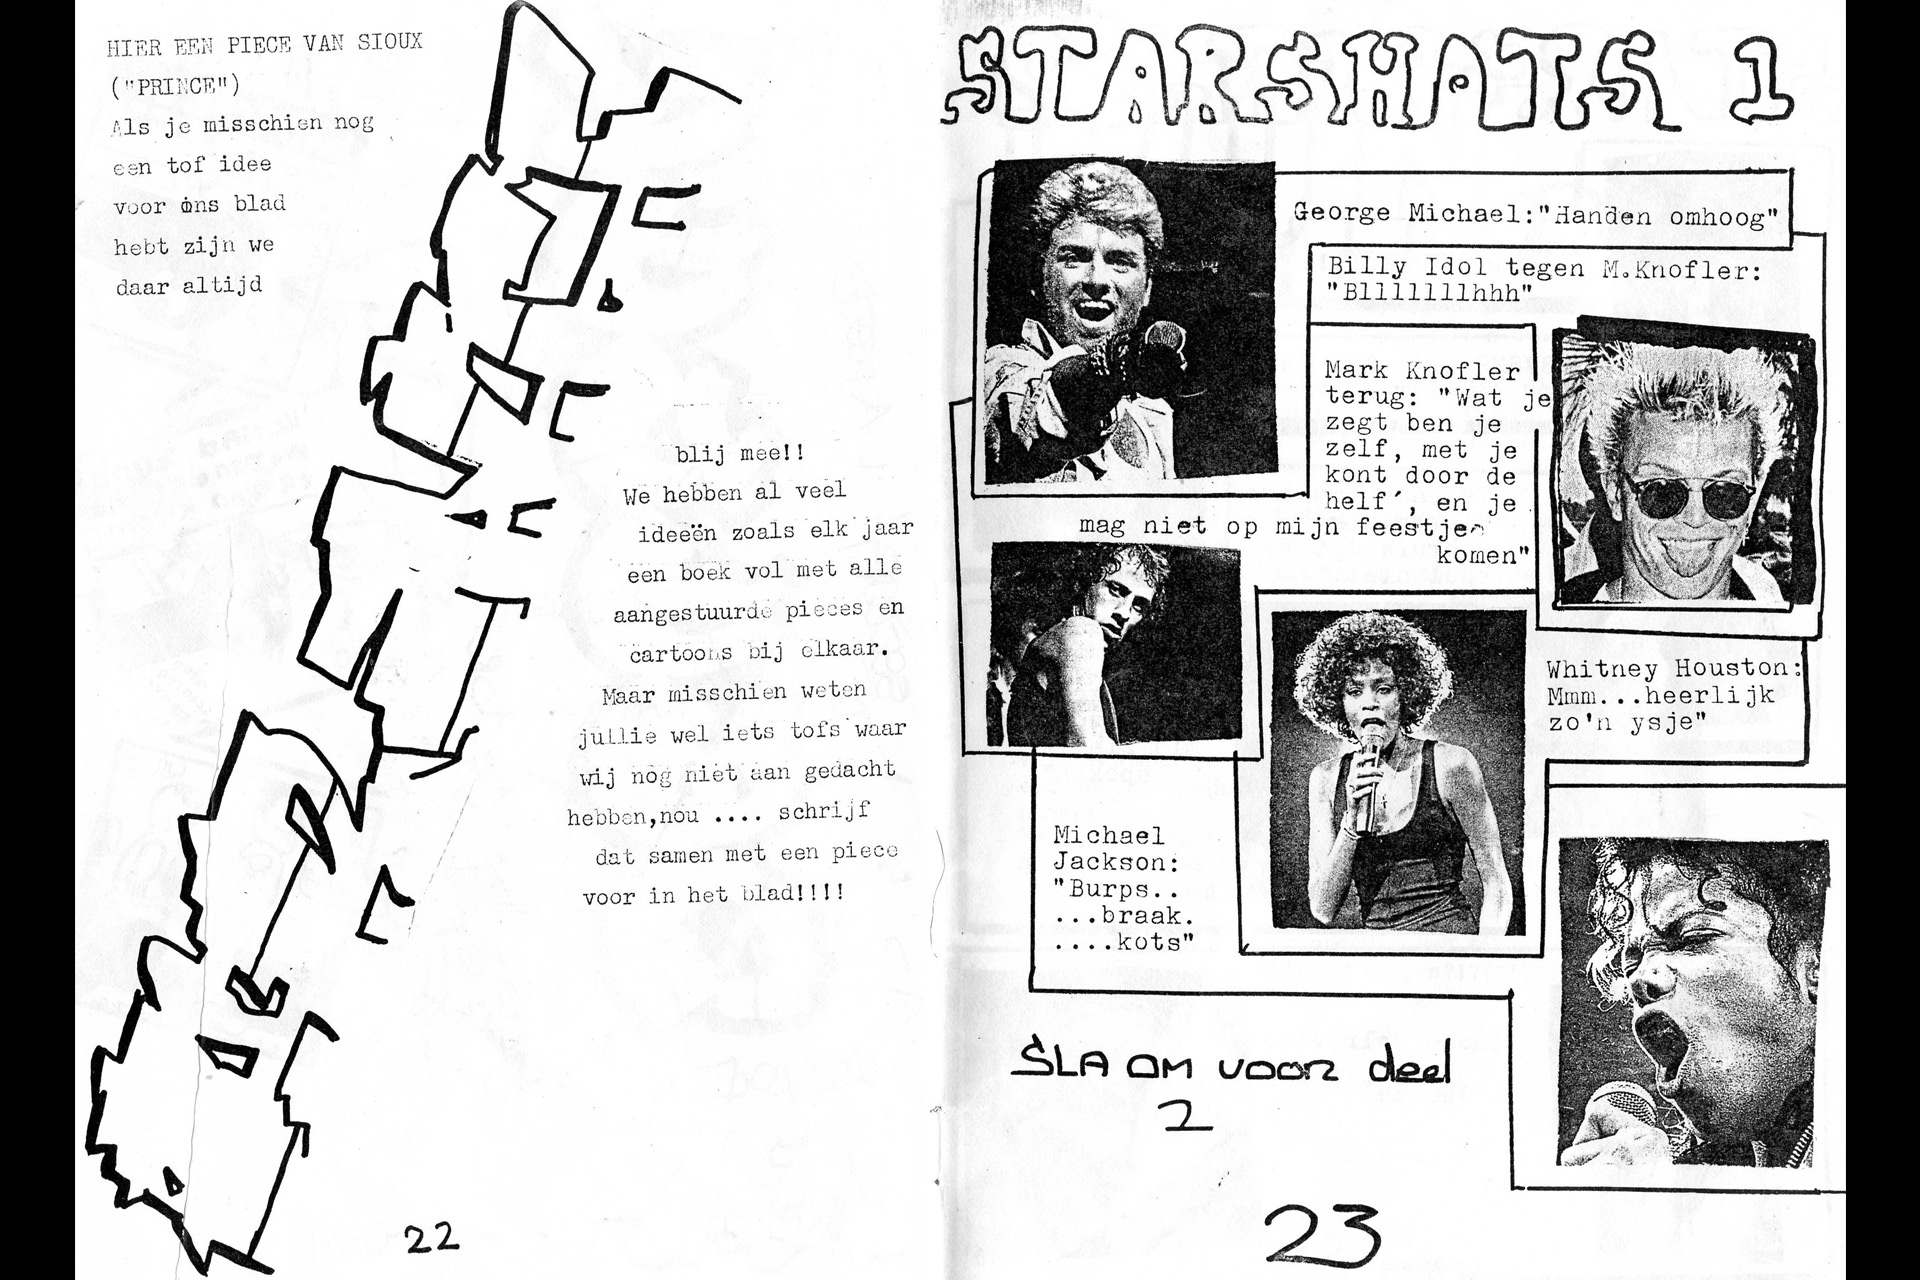 HIER EEN PIECE VAN SIOUX
("PRINCE")
Als je misschien nog
een tof idee
voor ons blad
hebt zijn we
daar altijd
blij mee!!
We hebben al veel
ideeën zoals elk jaar
een boek vol met alle
aangestuurde pieces en
cartoons bij elkaar.
Maar misschien weten
jullie wel iets tofs waar
wij nog niet aan gedacht
hebben,nou .... schrijf
dat samen met een piece
voor in het blad!!!!
22
STARSHATS 1
George Michael:"Handen omhoog"
Billy Idol tegen M.Knofler:
"Blllllllhhh"
Mark Knofler
terug: "Wat je
zegt ben je
zelf, met je
kont door de
helf´, en je
mag niet op mijn feestje
komen"
Whitney Houston:
Mmm...heerlijk
zo'n ysje"
Michael
Jackson:
"Burps..
...braak.
....kots"
SLA OM voor deel
2
23